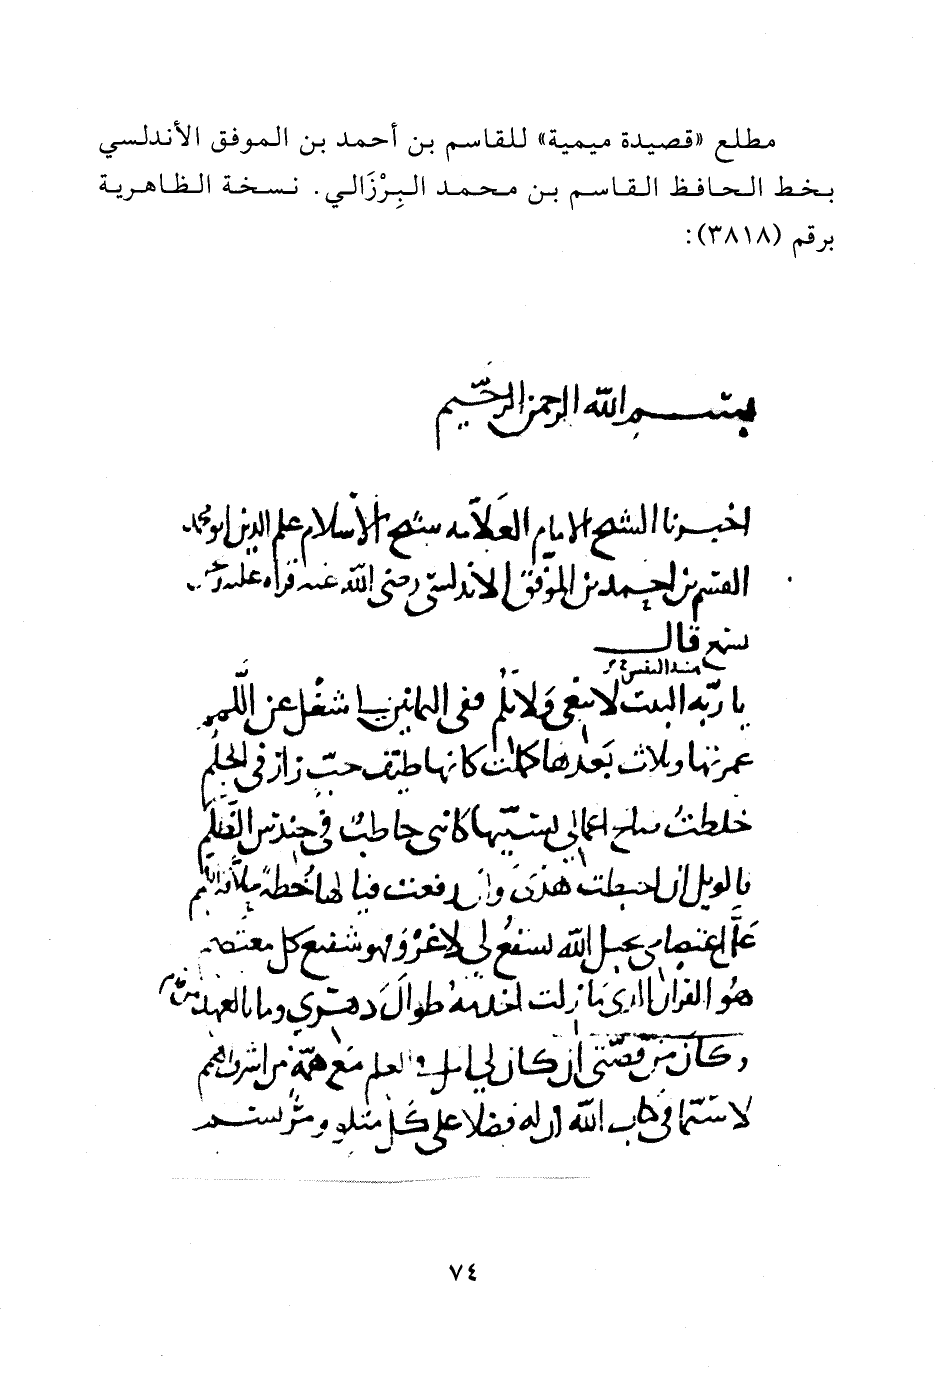 مطلع «قصيدة ميمية» للقاسم بن أحمد بن الموفق الأندلسي
بخط الحافظ القاسم بن محمد البِرْزَالي. نسخة الظاهرية
برقم (٣٨١٨):
بسم الله الرحمن الرحيم
اخبرنا الشيخ الامام العلامه شيخ الاسلام علم الدين ابو محمد
القسم بن احمد بن الموفق الاندلسي رضي الله عنه قراه عليه
نسمع قال
يا ربه البيت لا تبغي ولا تلم ففي الثمانين لي شغل عن اللمم
عمرتها وثلاث بعدها كملت كانها طيف حب زار في الحلم
خلطت صالح اعمالي بسيها كانني حاطب في حندس الظلم
يا لويل ان احبطت هذي وان رفعت فيا لها خطة
علَّ اعتصامي بحبل الله يشفع لي لا غرو فهو شفيع كل معتصم
هو القران الذي ما زلت اخدمه طوال دهري وما بالعهد من قدم
وكان من قصتي ان كان لي امل في العلم مع همة من اشرف الهمم
لا سيما في كتاب الله ان له فضلا على كل متلو ومرتسم
٧٤